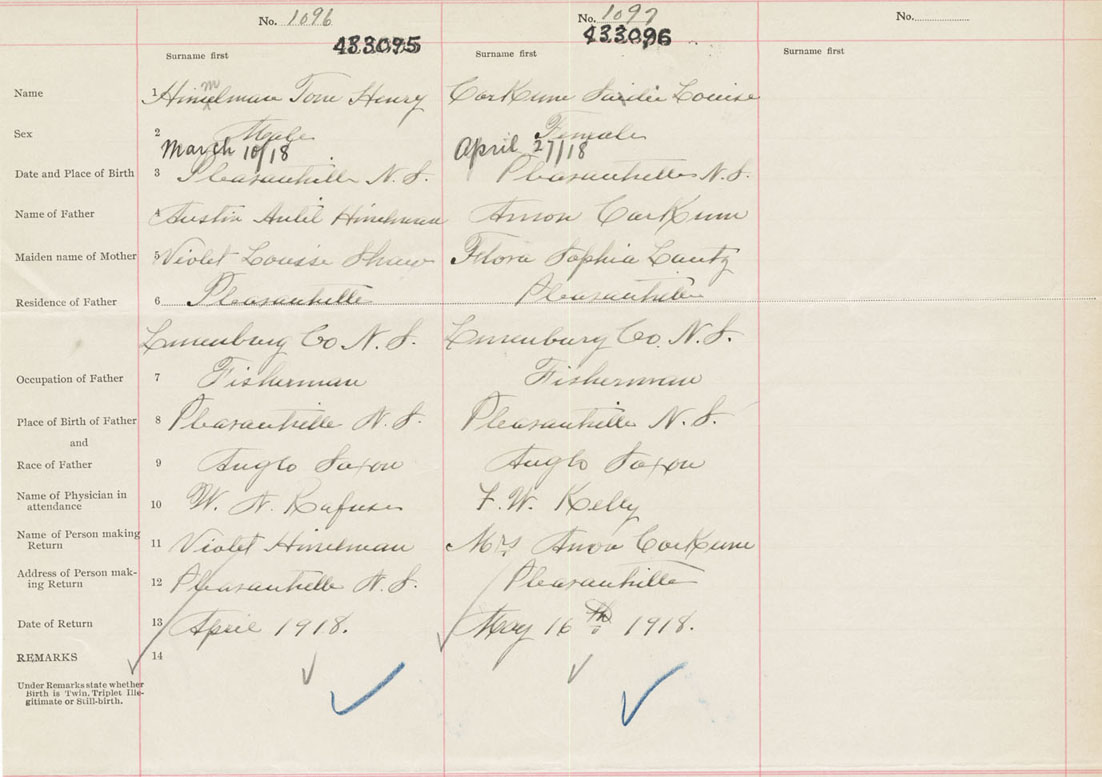 No. 1096 No. 1097 No.
433095 433096
Surname first Surname first Surname first
Name 1 Hinelman Tom Henry CorKum Saidie Louise
m
Sex 2 Male Female
March 10/18 April 27/18
Date and Place of Birth 3 Pleasantville N.S. Pleasantville N.S.
Name of Father 4 Austin Hinelman Anson CorKum
Maiden name of Mother 5 Violet Louisse Shaw Flora Sophia Lantz
Residence of Father 6 Pleasantville Pleasantville
Lunenburg Co N.S. Lunenburg Co. N.S.
Occupation of Father 7 Fisherman Fisherman
Place of Birth of Father 8 Pleasantville N.S. Pleasantville N.S.
and
Race of Father 9 Anglo Saxon Anglo Saxon
Name of Physician in
attendance 10 W. N. Rafuse F. W.
Name of Person making
Return 11 Violet Hinelman Mrs Anson CorKum
Address of Person mak-
ing Return 12 Pleasantville N.S. Pleasantville
Date of Return 13 April 1918. May 16th 1918.
REMARKS 14
Under Remarks state whether
Birth is Twin, Triplet Ille-
gitimate or Still-birth.